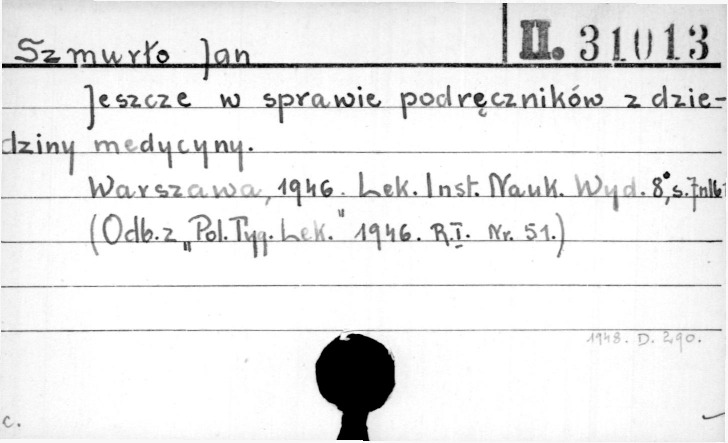 Szmurło Jan II. 31013
Jeszcze w sprawie podręczników z dzie-
dziny medycyny.
Warszawa, 1946. Lek. Inst. Nauk. Wyd. 8°, s.
(Odb. z „Pol. Tyg. Lek." 1946. R.I. Nr. 51.)
1948. D. 290.
c.